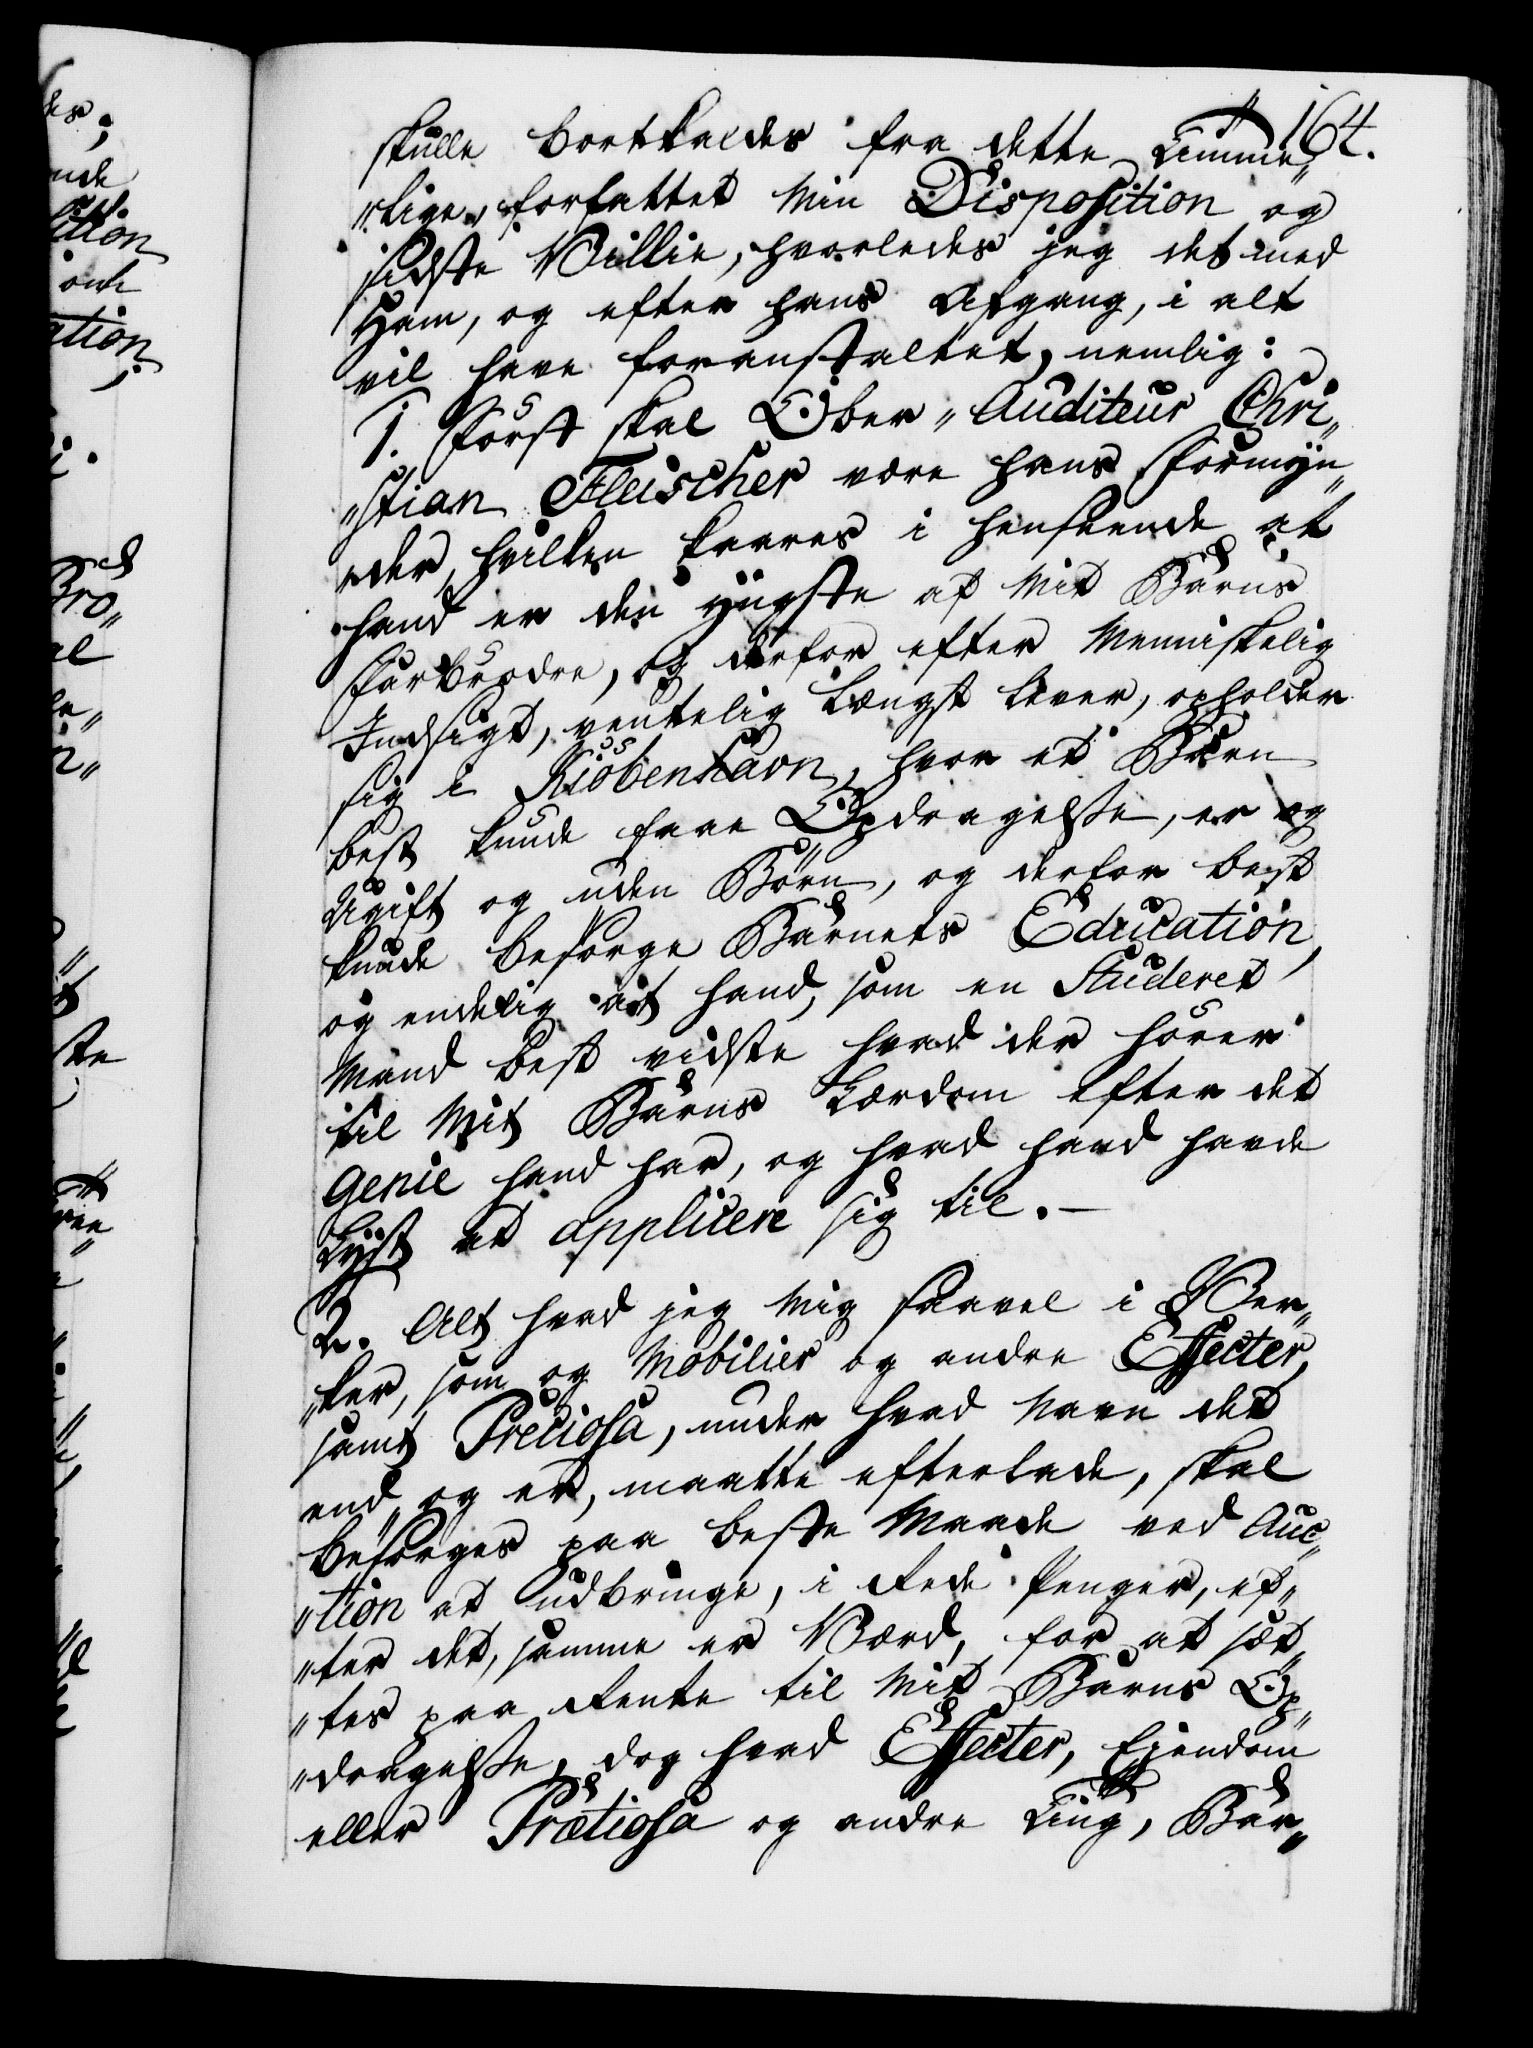 164.
skulle bortkaldes fra dette Timme„
„lige, forfattet Min Disposition og
sidste Villie, hvorledes jeg det med
Ham, og efter hans Afgang, i alt
vil have foranstaltet, nemlig:
1. Först skal Ober„Auditeur Chri„
„stian Fleischer være hans Formÿn„
„der, hvilken kaares i henseende at
hand er den ÿngste af Mit Barns
Farbrødre, og derfor efter Menniskelig
Indsigt, ventelig Længst lever, opholder
sig i Kiöbenhavn, hvor et Barn
best kunde faae Opdragelse, er og
Ugift og uden Börn, og derfor best
kunde besörge Barnets Education,
og endelig at hand, som en Studeret
Mand best vidste hvad der hörer
til Mit Barns Lærdom efter det
Genie hand har, og hvad hand havde
Lÿst at applicere sig til. —
2. Alt hvad jeg Mig saavel i Ver„
„ker, som og Mobilier og andre Effecter,
samt Preciosa, under hvad Navn det
end og er, maatte efterlade, skal
besörges paa beste Maade ved Auc„
„tion at udbringe, i rede Penger, ef„
„ter det, samme er Værd, for at sæt„
„tes paa Rente til Mit Barns Op„
„dragelse, dog hvad Effecter, Eiendom
eller Prætiosa og andre Ting, Bar„